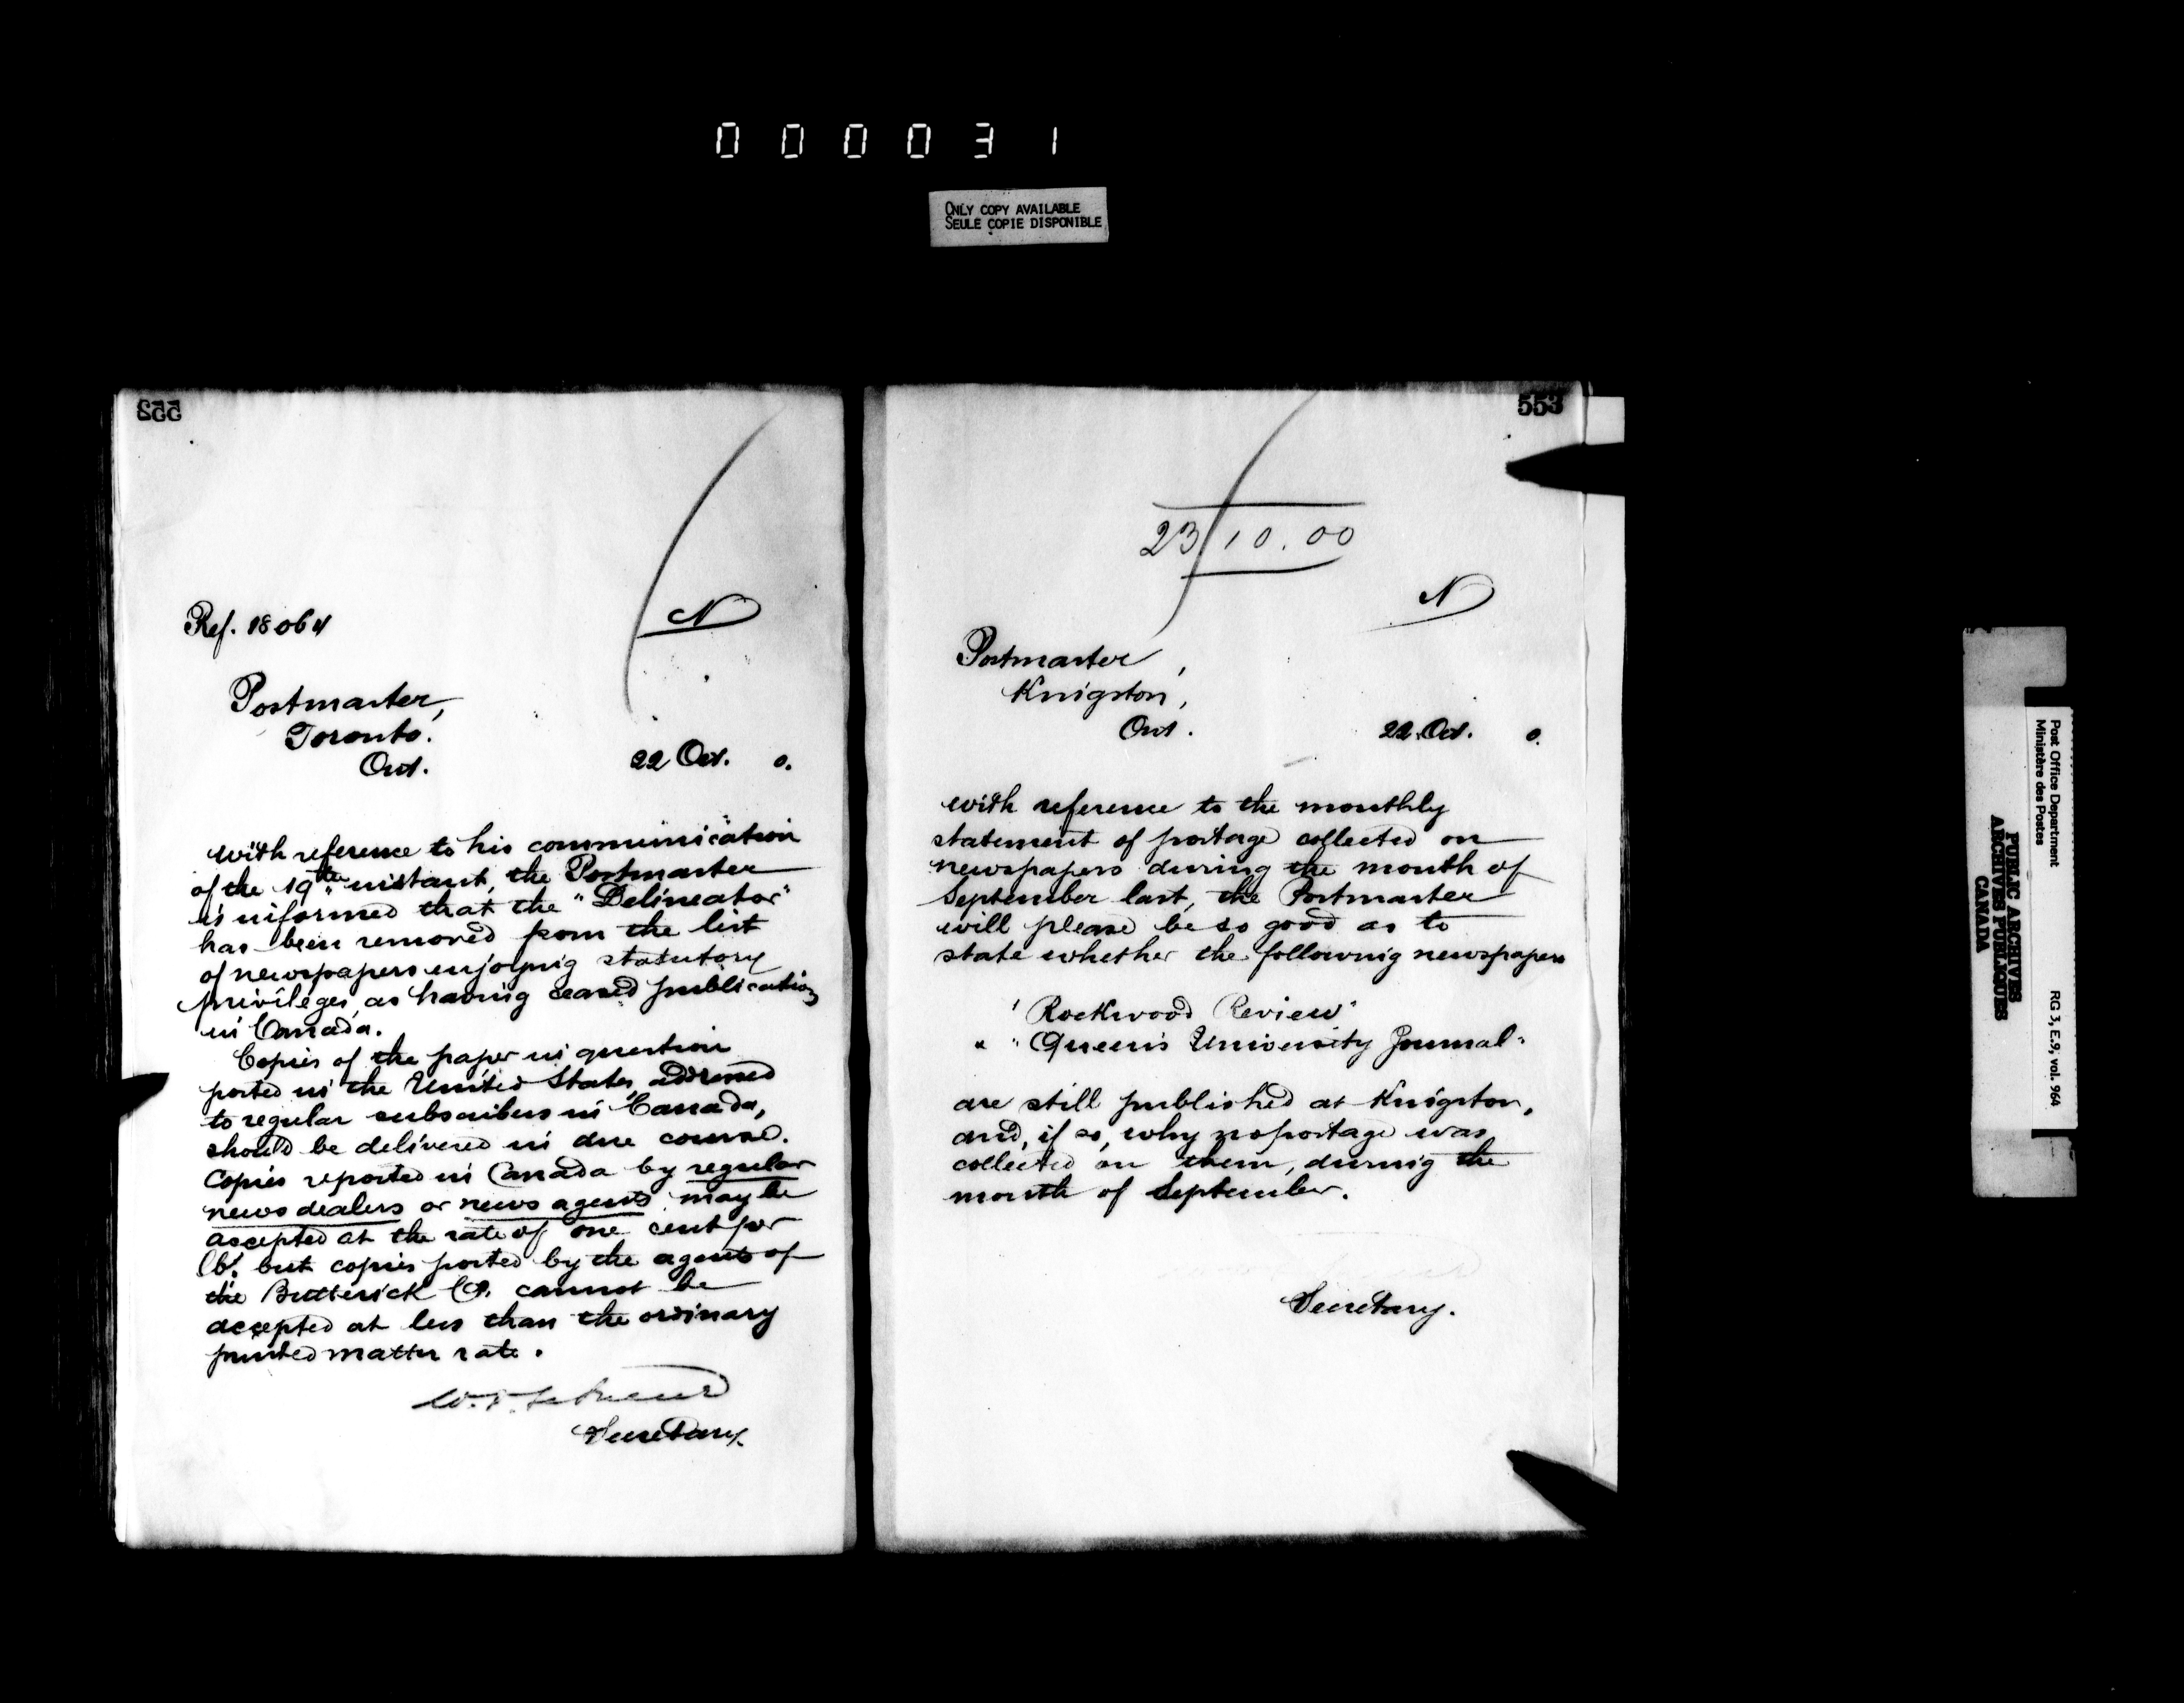 000031
ONLY COPY AVAILABLE
SEULE COPIE DISPONIBLE
552
Ref. 18064
N
Postmaster,
Toronto.
Ont.
22 Oct. 0.
with reference to his communication
of the 19th instant, the Postmaster
is informed that the "Delineator"
has been removed from the list
of newspapers enjoying statutory
privileges, as having ceased publication
in Canada.
Copies of the paper in question
posted in the United States, addressed
to regular subscribers in Canada,
should be delivered in due course.
Copies reposted in Canada by regular
news dealers or news agents may be
accepted at the rate of one cent per
lb. but copies posted by the agents of
the Butterick Co. cannot be
accepted at less than the ordinary
printed matter rate.
Secretary.
553
23 10.00
N
Postmaster,
Kingston,
Ont.
22 Oct. 0.
with reference to the monthly
statement of postage collected on
newspapers during the month of
September last, the Postmaster
will please be so good as to
state whether the following newspapers
"Rockwood Review"
" "Queen's University Journal"
are still published at Kingston,
and, if so, why no postage was
collected on them, during the
month of September.
Secretary.
Post Office Department
Ministère des Postes
RG 3, E.9, vol. 964
PUBLIC ARCHIVES
ARCHIVES PUBLIQUES
CANADA